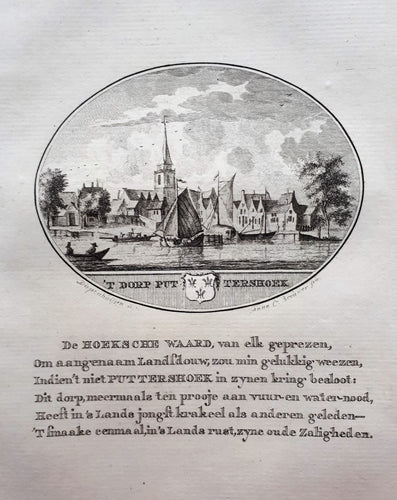 'T DORP PUTTERSHOEK.
Anna C. Brouwer
De HOEKSCHE WAARD, van elk geprezen,
Om aangenaam Landsdouw, zou min gelukkig weezen,
Indien't niet PUTTERSHOEK in zynen kring besloot:
Dit dorp, meermaals ten prooje aan vuur- en water-nood,
Heeft in 's Lands jongst krakeel als anderen geleden—
'T smaake eenmaal, in 's Lands rust, zyne oude Zaligheden.